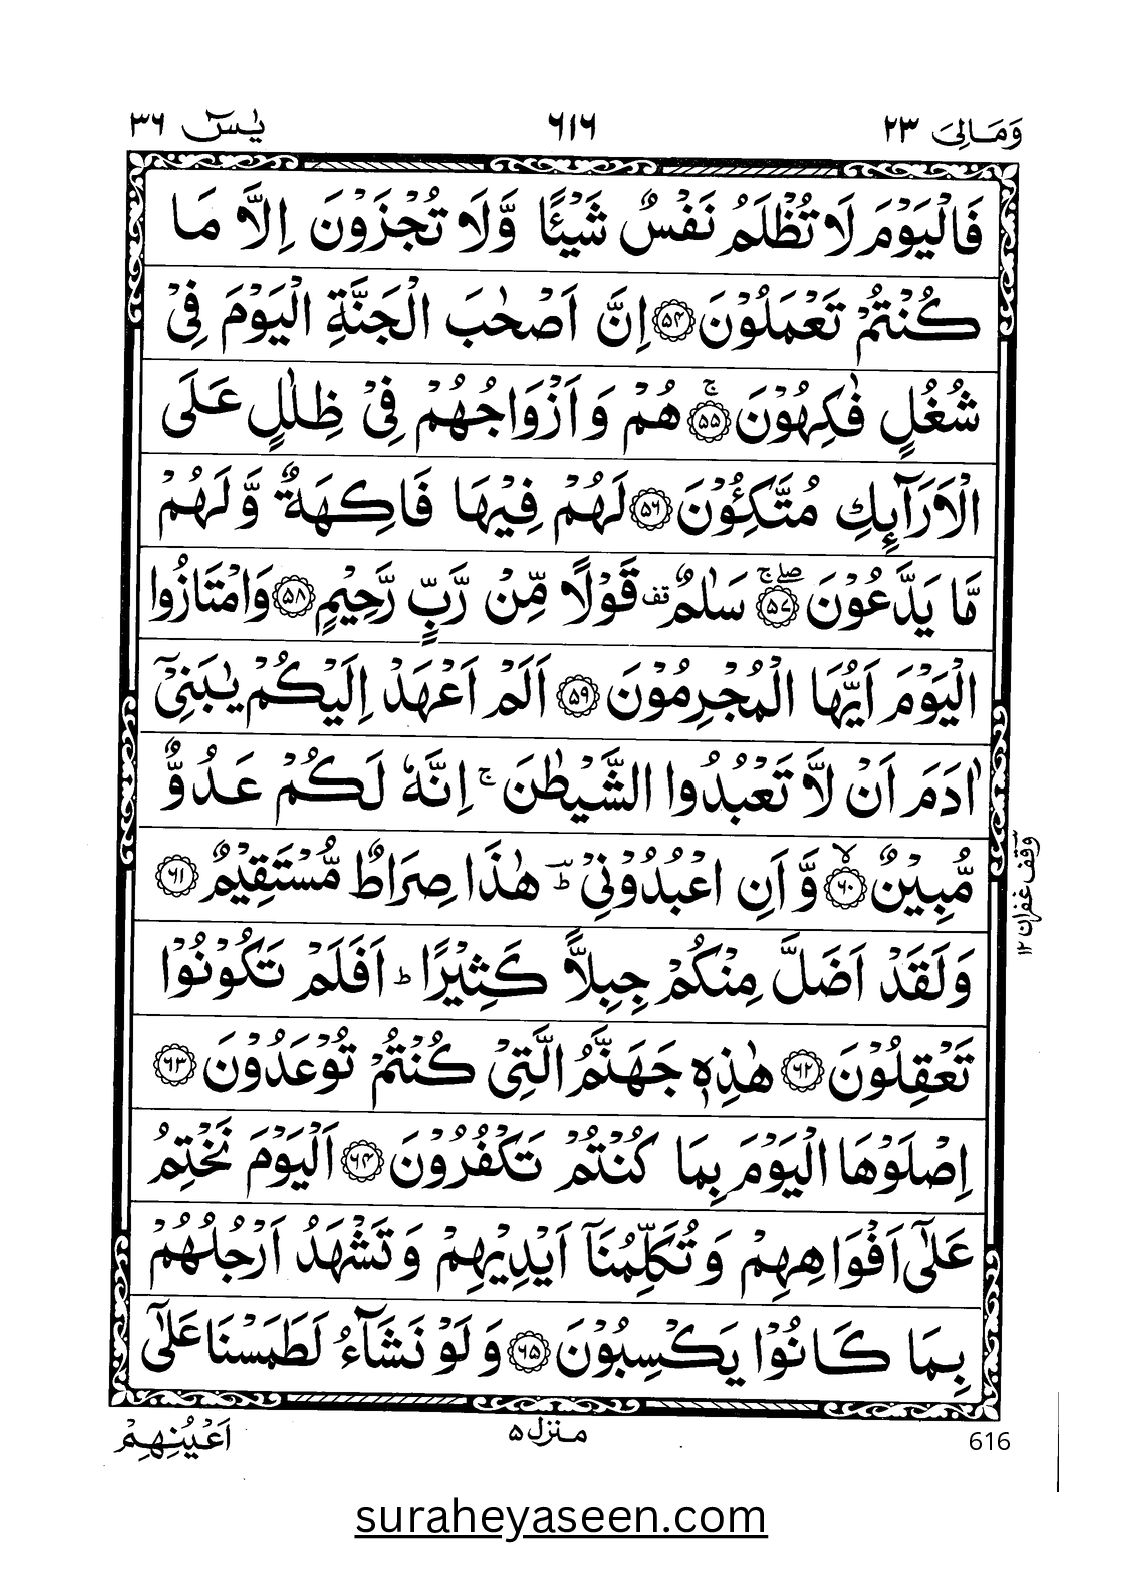 وَمَالِیَ ٢٣
٦١٦
یٰسٓ ٣٦
فَالْیَوْمَ لَا تُظْلَمُ نَفْسٌ شَیْـًٔا وَّلَا تُجْزَوْنَ اِلَّا مَا
كُنْتُمْ تَعْمَلُوْنَ ﴿۵۴﴾ اِنَّ اَصْحٰبَ الْجَنَّةِ الْیَوْمَ فِیْ
شُغُلٍ فٰكِهُوْنَ ۚ﴿۵۵﴾ هُمْ وَاَزْوَاجُهُمْ فِیْ ظِلٰلٍ عَلَی
الْاَرَآئِكِ مُتَّكِـُٔوْنَ ﴿۵۶﴾ لَهُمْ فِیْهَا فَاكِهَةٌ وَّلَهُمْ
مَّا یَدَّعُوْنَ ۖۚ﴿۵۷﴾ سَلٰمٌ قف قَوْلًا مِّنْ رَّبٍّ رَّحِیْمٍ ﴿۵۸﴾ وَامْتَازُوا
الْیَوْمَ اَیُّهَا الْمُجْرِمُوْنَ ﴿۵۹﴾ اَلَمْ اَعْهَدْ اِلَیْكُمْ یٰبَنِیْۤ
اٰدَمَ اَنْ لَّا تَعْبُدُوا الشَّیْطٰنَ ۚ اِنَّهٗ لَكُمْ عَدُوٌّ
مُّبِیْنٌ ۙ﴿۶۰﴾ وَّاَنِ اعْبُدُوْنِیْ ؔؕ هٰذَا صِرَاطٌ مُّسْتَقِیْمٌ ﴿۶۱﴾
وقف غفران ١٢
وَلَقَدْ اَضَلَّ مِنْكُمْ جِبِلًّا كَثِیْرًا ؕ اَفَلَمْ تَكُوْنُوْا
تَعْقِلُوْنَ ﴿۶۲﴾ هٰذِهٖ جَهَنَّمُ الَّتِیْ كُنْتُمْ تُوْعَدُوْنَ ﴿۶۳﴾
اِصْلَوْهَا الْیَوْمَ بِمَا كُنْتُمْ تَكْفُرُوْنَ ﴿۶۴﴾ اَلْیَوْمَ نَخْتِمُ
عَلٰۤی اَفْوَاهِهِمْ وَتُكَلِّمُنَاۤ اَیْدِیْهِمْ وَتَشْهَدُ اَرْجُلُهُمْ
بِمَا كَانُوْا یَكْسِبُوْنَ ﴿۶۵﴾ وَلَوْ نَشَآءُ لَطَمَسْنَا عَلٰۤی
616
منزل ۵
اَعْیُنِهِمْ
suraheyaseen.com